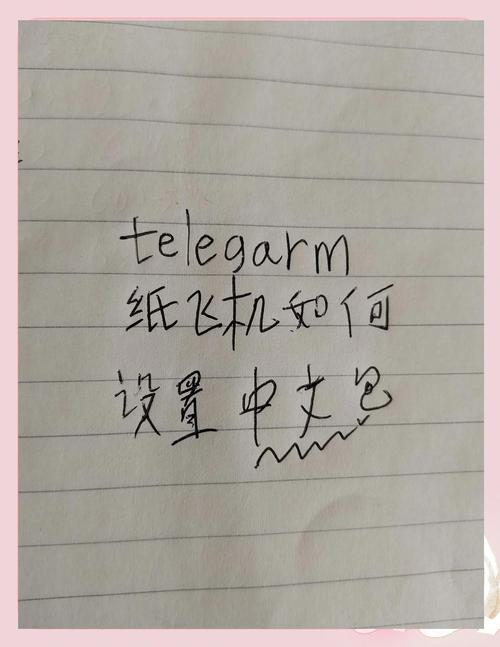 telegarm
纸飞机如何
设置中文包